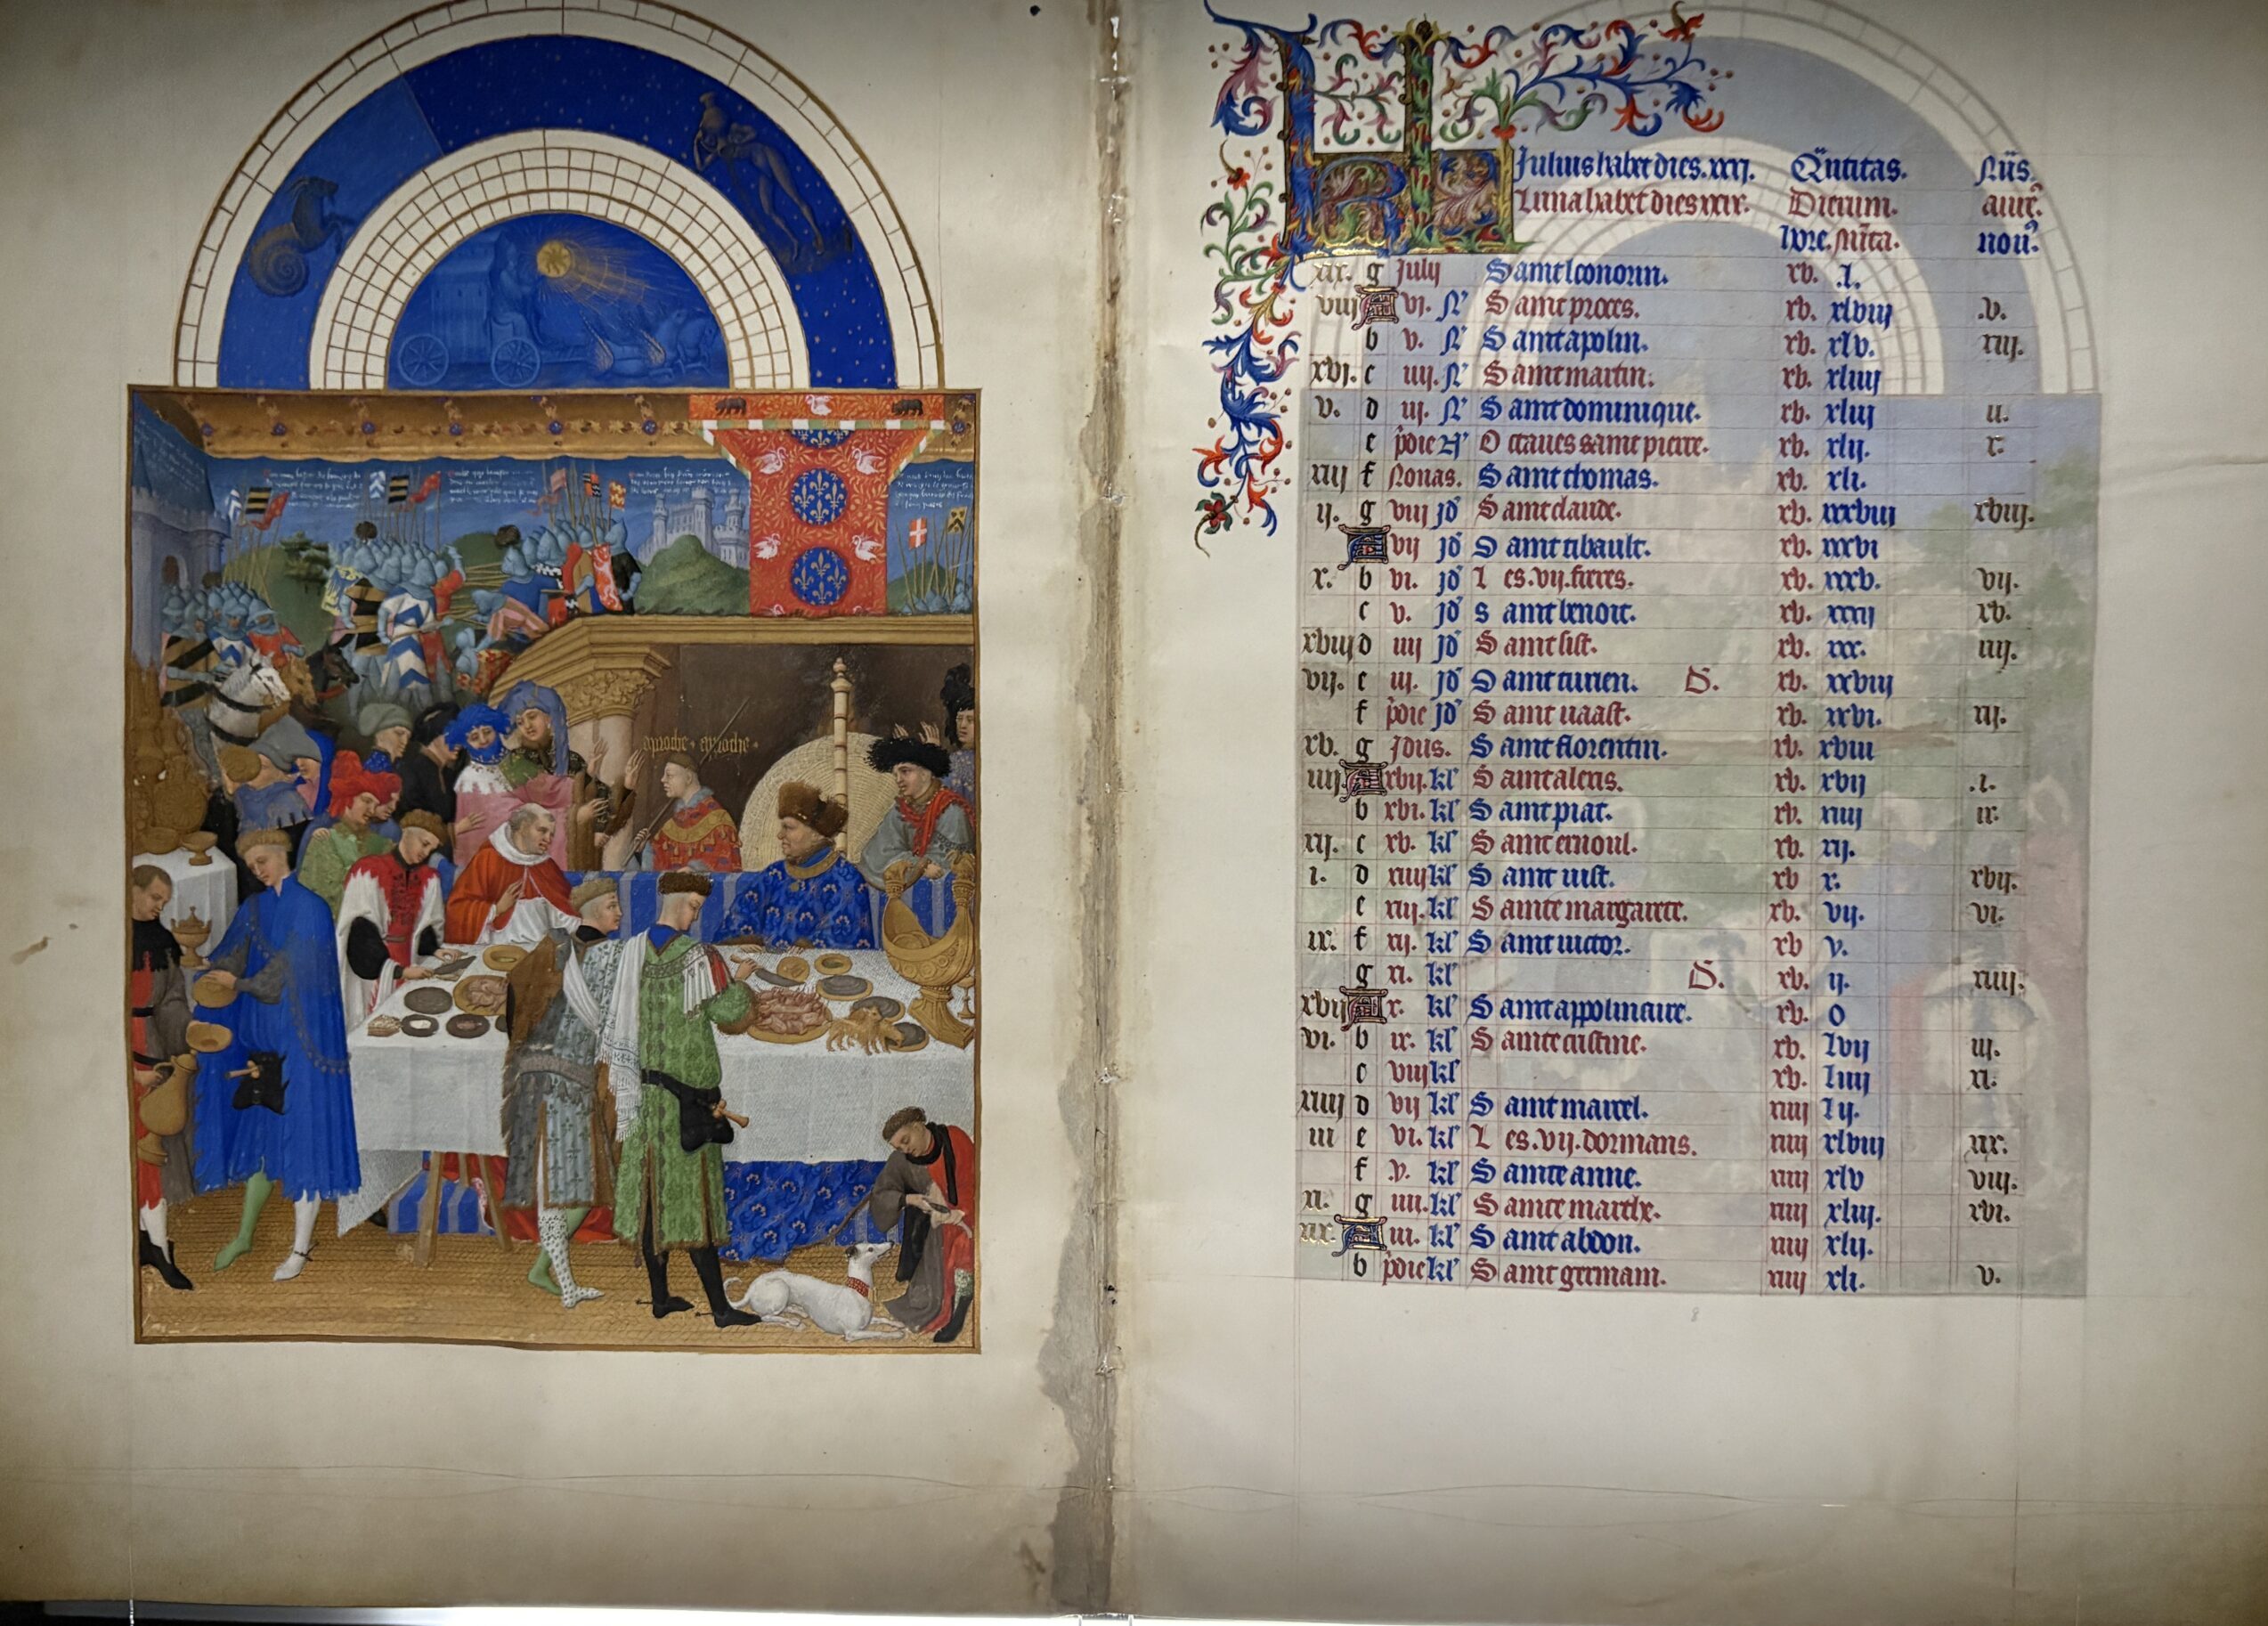 aproche + aproche
KL Julius habet dies . xxxj. Q̃ntitas. Nũs.
Luna habet dies xxix. Dierum. aurẽ.
hore. Mĩta. nou᷑.
xix. g July Saint leonorin. xv. .l.
viij A vj. N Saint proces. xv. xlviij .v.
b v. N Saint apolin. xv. xlv. xiij.
xvj. c iiij. N Saint martin. xv. xliiij
v. d iij. N Saint dominique. xv. xliij ij.
e p̃die N Octaues saint pierre. xv. xlij. x.
xiij f Nonas. Saint thomas. xv. xlj.
ij. g viij jd Saint claude. xv. xxxviij xviij.
A vij jd Saint tibault. xv. xxxvj
x. b vj. jd Les .vij. freres. xv. xxxv. vij.
c v. jd saint benoit. xv. xxxij xv.
xviij d iiij jd Saint sist. xv. xxx. iiij.
vij. e iij. jd Saint turien. D. xv. xxviij
f p̃die jd Saint vaast. xv. xxvj. xij.
xv. g Jdus. Saint florentin. xv. xviij
iiij A xvij. kl Saint alexis. xv. xvij .j.
b xvj. kl Saint piat. xv. xiiij ix.
xij. c xv. kl Saint ernoul. xv. xij.
j. d xiiij kl Saint vist. xv x. xvij.
e xiij. kl Sainte margarete. xv. vij. vj.
ix. f xij. kl Saint victor. xv v.
g xj. kl D. xv. ij. xiiij.
xvij A x. kl Saint appolinaire. xv. o
vj. b ix. kl Sainte cristine. xv. lvij iij.
c viij kl xv. liiij xj.
xiiij d vij kl Saint marcel. xiiij lj.
iij e vj. kl Les .vij. dormans. xiiij xlviij xix.
f .v. kl Sainte anne. xiiij xlv viij.
xj. g iiij. kl Sainte marthe. xiiij xliij. xvj.
xix. A iij. kl Saint abdon. xiiij xlij.
b p̃die kl Saint germain. xiiij xlj. v.
8